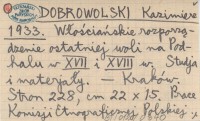 DOBROWOLSKI Kazimierz
1933. Włościańskie rozporzą-
dzenie ostatniej woli na Pod-
halu w XVII i XVIII w. Studja
i materjały. — Kraków.
Stron 228, cm 22 x 15. Prace
Komisji Etnograficznej Polskiej